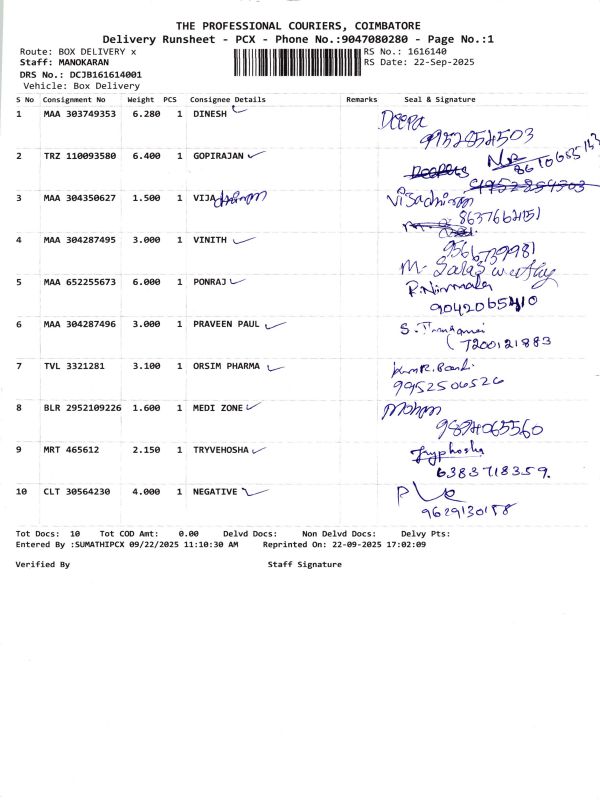 THE PROFESSIONAL COURIERS, COIMBATORE
Delivery Runsheet - PCX - Phone No.:9047080280 - Page No.:1
Route: BOX DELIVERY x RS No.: 1616140
Staff: MANOKARAN RS Date: 22-Sep-2025
DRS No.: DCJB161614001
Vehicle: Box Delivery
S No Consignment No Weight PCS Consignee Details Remarks Seal & Signature
1 MAA 303749353 6.280 1 DINESH Deepa
9952854503
2 TRZ 110093580 6.400 1 GOPIRAJAN
3 MAA 304350627 1.500 1 VIJA
8637664151
4 MAA 304287495 3.000 1 VINITH 9566739981
M.
5 MAA 652255673 6.000 1 PONRAJ P. Nirmala
9042065410
6 MAA 304287496 3.000 1 PRAVEEN PAUL S.
7200121883
7 TVL 3321281 3.100 1 ORSIM PHARMA
9952506526
8 BLR 2952109226 1.600 1 MEDI ZONE Mohan
9894065560
9 MRT 465612 2.150 1 TRYVEHOSHA Tryphosha
6383718359.
10 CLT 30564230 4.000 1 NEGATIVE
9629130158
Tot Docs: 10 Tot COD Amt: 0.00 Delvd Docs: Non Delvd Docs: Delvy Pts:
Entered By :SUMATHIPCX 09/22/2025 11:10:30 AM Reprinted On: 22-09-2025 17:02:09
Verified By Staff Signature